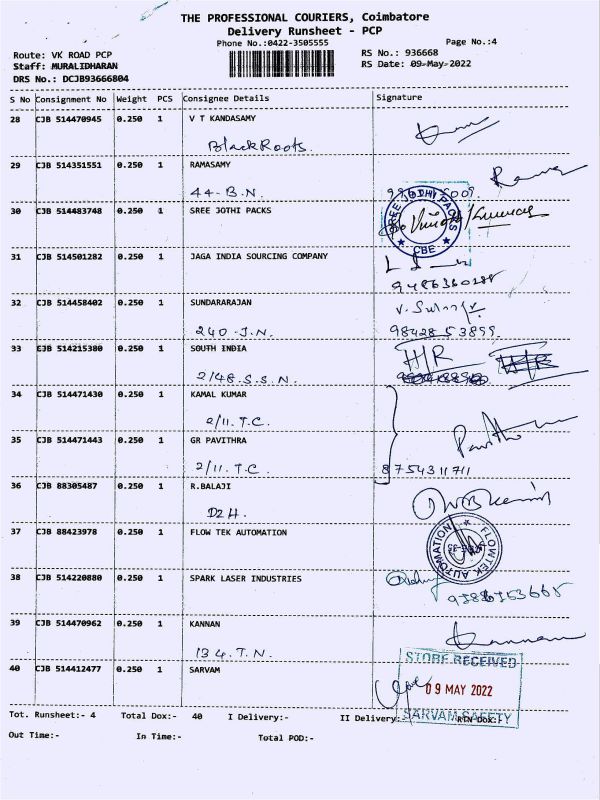 THE PROFESSIONAL COURIERS, Coimbatore
Delivery Runsheet - PCP
Phone No.:0422-3505555
Page No.:4
Route: VK ROAD PCP
RS No.: 936668
Staff: MURALIDHARAN
RS Date: 09-May-2022
DRS No.: DCJB93666804
S No Consignment No Weight PCS Consignee Details Signature
28 CJB 514470945 0.250 1 V T KANDASAMY
BlackRoots.
29 CJB 514351551 0.250 1 RAMASAMY
44-B.N.
30 CJB 514483748 0.250 1 SREE JOTHI PACKS
SREE JODHI PACKS
CBE
31 CJB 514501282 0.250 1 JAGA INDIA SOURCING COMPANY
32 CJB 514458402 0.250 1 SUNDARARAJAN
240-J.N. 98428 53899
33 CJB 514215380 0.250 1 SOUTH INDIA
H/R
2/48.S.S.N.
34 CJB 514471430 0.250 1 KAMAL KUMAR
2/11.T.C.
35 CJB 514471443 0.250 1 GR PAVITHRA
2/11.T.C. 8754311711
36 CJB 88305487 0.250 1 R.BALAJI
D2H.
37 CJB 88423978 0.250 1 FLOW TEK AUTOMATION
FLOWTEK AUTOMATION
38 CJB 514220880 0.250 1 SPARK LASER INDUSTRIES
39 CJB 514470962 0.250 1 KANNAN
134.T.N.
40 CJB 514412477 0.250 1 SARVAM
STORE RECEIVED
09 MAY 2022
SARVAM SAFETY
Tot. Runsheet:- 4 Total Dox:- 40 I Delivery:- II Delivery:- RTN Dox:-
Out Time:- In Time:- Total POD:-